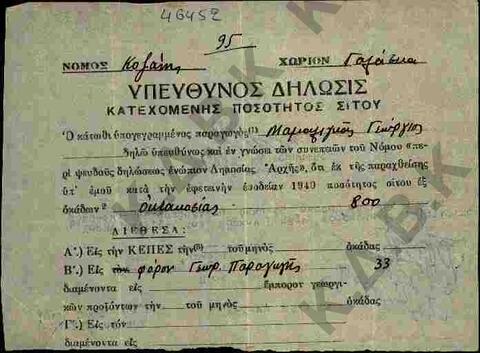 46452
95
ΝΟΜΟΣ Κοζάνης ΧΩΡΙΟΝ Γαλάτεια
ΥΠΕΥΘΥΝΟΣ ΔΗΛΩΣΙΣ
ΚΑΤΕΧΟΜΕΝΗΣ ΠΟΣΟΤΗΤΟΣ ΣΙΤΟΥ
Ὁ κάτωθι ὑπογεγραμμένος παραγωγὸς(1) Γεώργιος
δηλῶ ὑπευθύνως καὶ ἐν γνώσει τῶν συνεπειῶν τοῦ Νόμου «πε-
ρὶ ψευδοῦς δηλώσεως ἐνώπιον Δημοσίας Ἀρχῆς», ὅτι ἐκ τῆς παραχθείσης
ὑπ' ἐμοῦ κατὰ τὴν ἐφετεινὴν ἐσοδείαν 1940 ποσότητος σίτου ἐξ
ὀκάδων ὀκτακοσίας 800
ΔΙΕΘΕΣΑ:
Α΄.) Εἰς τὴν ΚΕΠΕΣ τὴν τοῦ μηνὸς ὀκάδας
Β΄.) Εἰς τὸν φόρον Γεωρ. Παραγωγῆς 33
διαμένοντα εἰς ἔμπορον γεωργι-
κῶν προϊόντων τὴν τοῦ μηνὸς ὀκάδας
Γ΄.) Εἰς τὸν
διαμένοντα εἰς
Κ.Α.Β.Κ